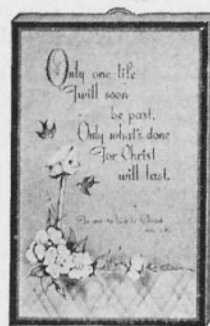 Only one life
'Twill soon
be past,
Only what's done
For Christ
will last.
to Christ